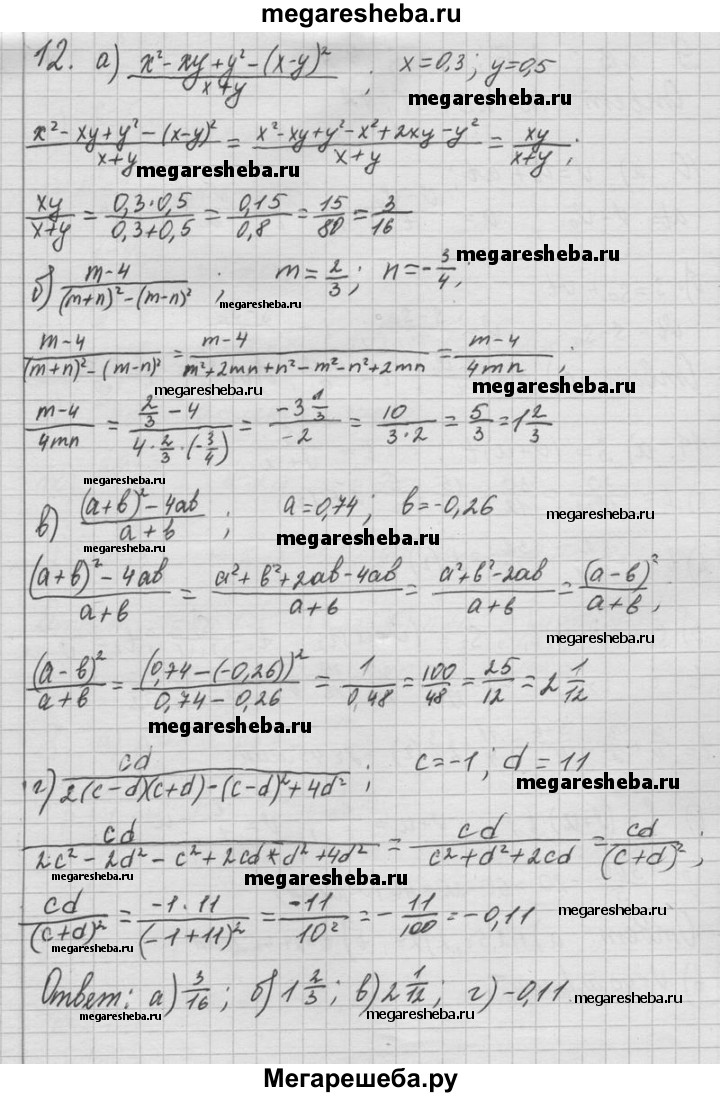 megaresheba.ru
12. а) (x² - xy + y² - (x-y)²)/(x+y) ; x=0,3; y=0,5
megaresheba.ru
(x² - xy + y² - (x-y)²)/(x+y) = (x² - xy + y² - x² + 2xy - y²)/(x+y) = xy/(x+y);
megaresheba.ru
xy/(x+y) = (0,3·0,5)/(0,3+0,5) = 0,15/0,8 = 15/80 = 3/16
megaresheba.ru
б) (m-4)/((m+n)² - (m-n)²) ; m = 2/3; n = -3/4;
megaresheba.ru
(m-4)/((m+n)² - (m-n)²) = (m-4)/(m² + 2mn + n² - m² - n² + 2mn) = (m-4)/(4mn) ;
megaresheba.ru megaresheba.ru
(m-4)/(4mn) = (2/3 - 4)/(4·2/3·(-3/4)) = (-3 1/3)/(-2) = 10/(3·2) = 5/3 = 1 2/3
megaresheba.ru
megaresheba.ru
в) ((a+b)² - 4ab)/(a+b) ; a=0,74; b=-0,26
megaresheba.ru
megaresheba.ru
((a+b)² - 4ab)/(a+b) = (a² + b² + 2ab - 4ab)/(a+b) = (a² + b² - 2ab)/(a+b) = (a-b)²/(a+b);
megaresheba.ru
(a-b)²/(a+b) = (0,74 - (-0,26))²/(0,74 - 0,26) = 1/0,48 = 100/48 = 25/12 = 2 1/12
megaresheba.ru
megaresheba.ru
г) cd/(2(c-d)(c+d) - (c-d)² + 4d²) ; c=-1; d = 11
megaresheba.ru
cd/(2c² - 2d² - c² + 2cd * d² + 4d²) = cd/(c² + d² + 2cd) = cd/(c+d)²;
megaresheba.ru megaresheba.ru megaresheba.ru
cd/(c+d)² = (-1·11)/(-1+11)² = -11/10² = -11/100 = -0,11
megaresheba.ru
Ответ: а) 3/16; б) 1 2/3; в) 2 1/12; г) -0,11
megaresheba.ru megaresheba.ru megaresheba.ru
Мегарешеба.ру